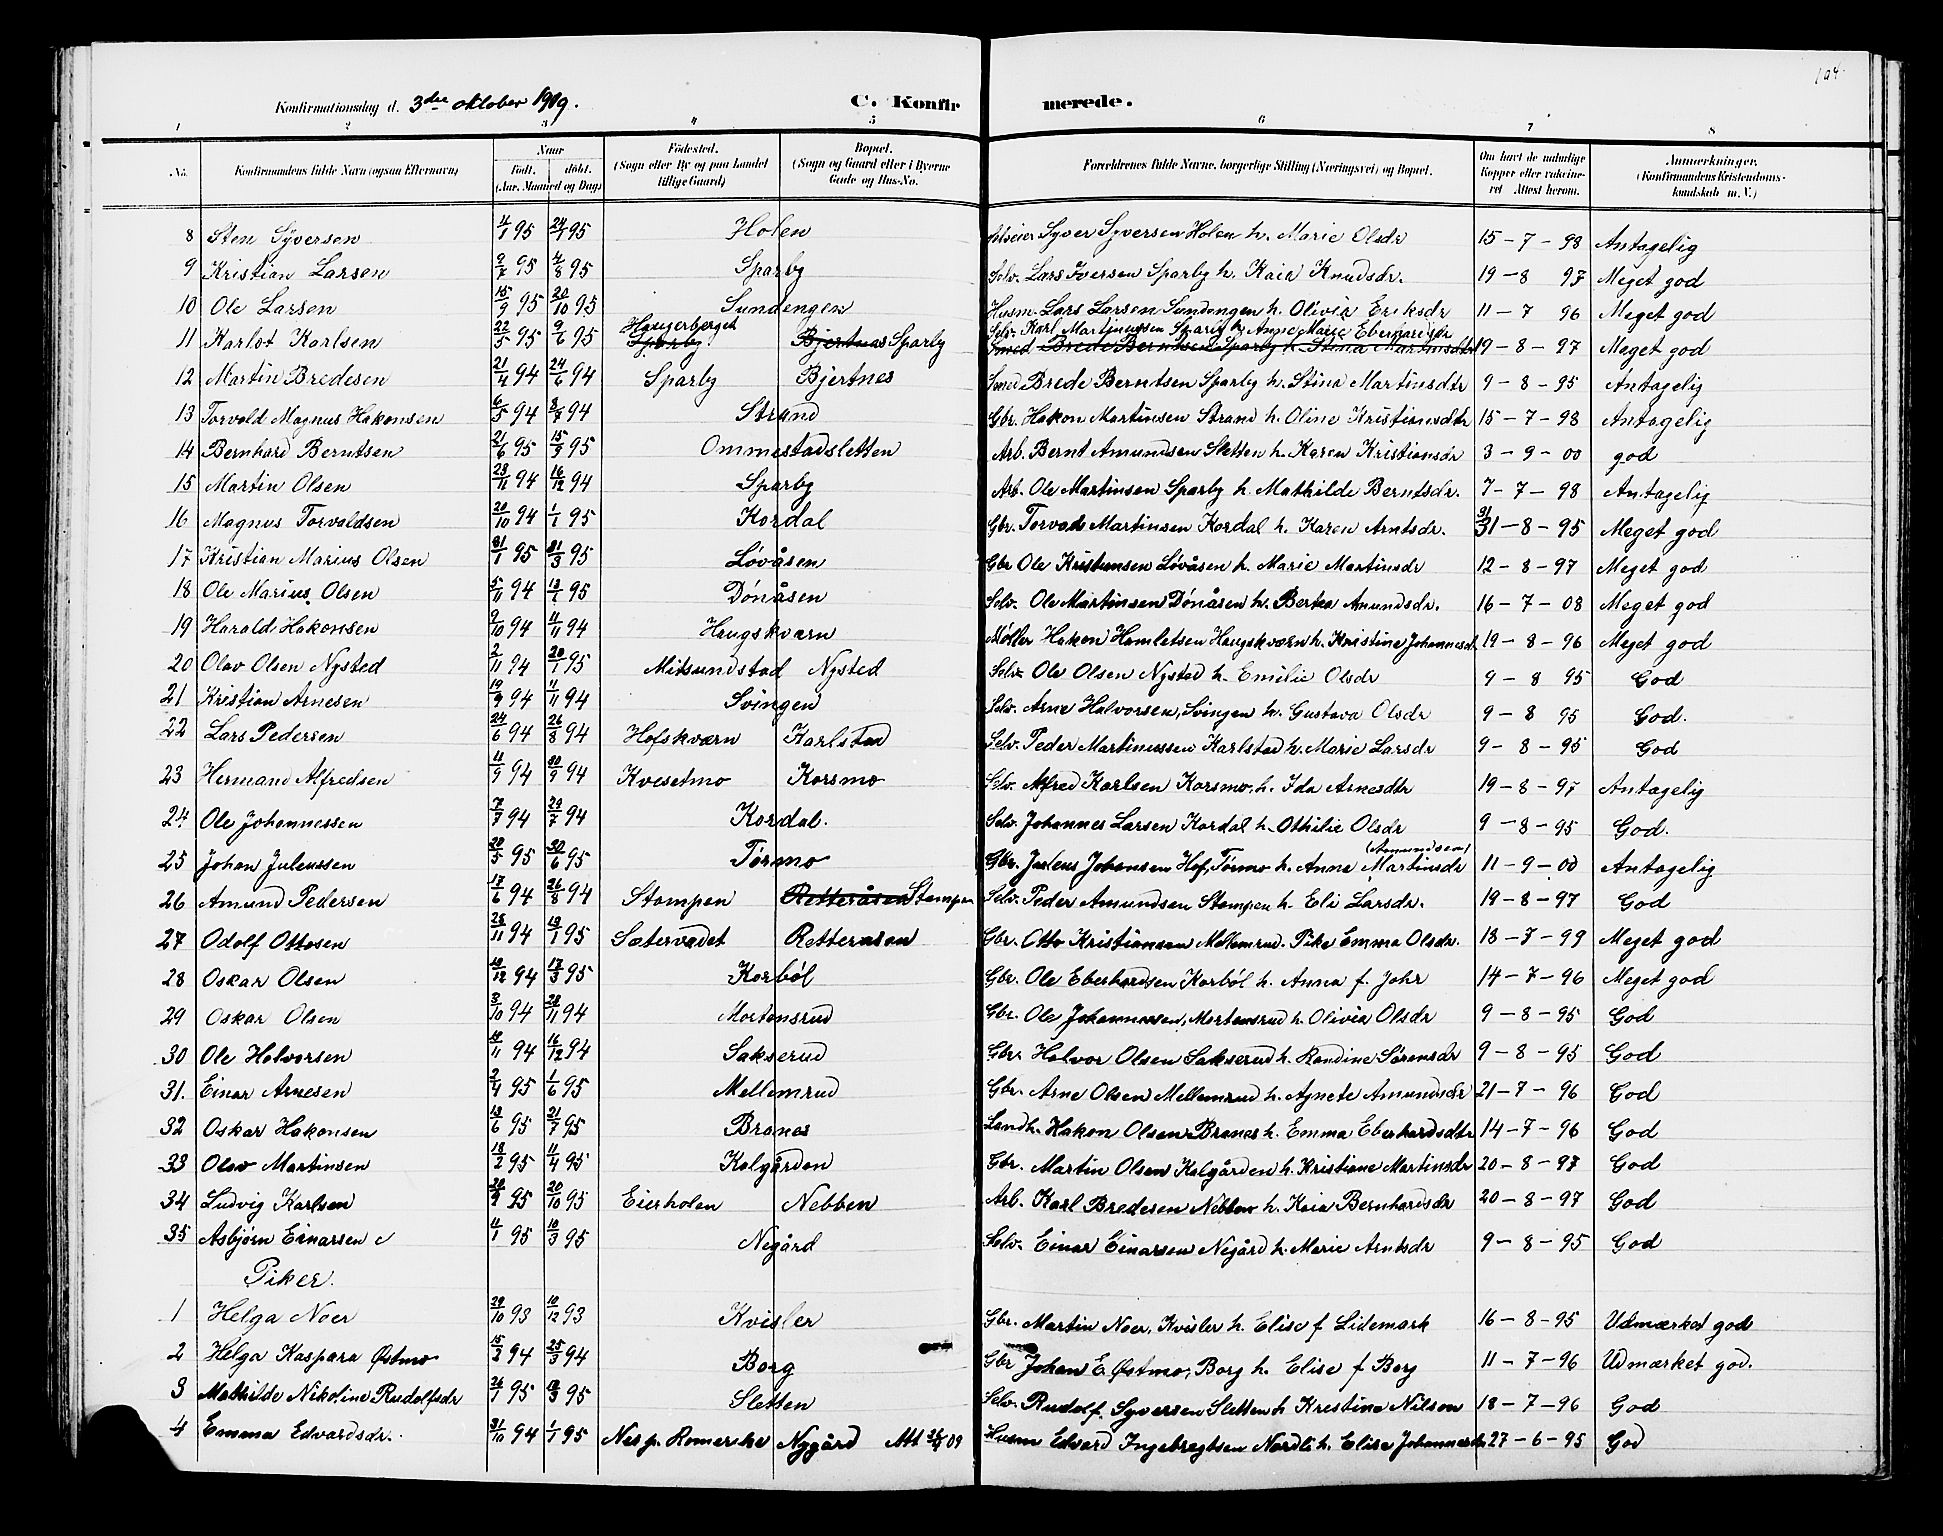 104.
Konfirmationsdag d. 3die oktober 1909. C. Konfirmerede.
1 2 3 4 5 6 7 8
No. Konfirmandens fulde Navn (ogsaa Efternavn) Naar Födt. döbt. (Aar, Maaned og Dag) Födested. (Sogn eller By og paa Landet tillige Gaard) Bopæl. (Sogn og Gaard eller i Byerne Gade og Hus-No. Forældrenes fulde Navne, borgerlige Stilling (Næringsvei) og Bopæl. Om havt de naturlige Kopper eller vaccineret Attest herom. Anmærkninger. (Konfirmandens Kristendomskundskab m. V.)
8 Sten Syversen 4/1 95 24/1 95 Holen Selveier Syver Syversen Holen h. Marie Olsdr 15-7-98 Antagelig
9 Kristian Larsen 9/7 95 4/8 95 Sparby Selv. Lars Iversen Sparby h. Kaia Knudsdr. 19-8 97 Meget god
10 Ole Larsen 15/9 95 20/10 95 Sundengen Husm. Lars Larsen Sundengen h. Olivia Eriksdr 11-7 96 Meget god
11 Karlot Karlsen 22/5 95 9/6 95 Haugerberget Sparby Bjertnes Sparby Selv. Karl Martinussen Sparby h. Anne Marie Ebermaredr Smed Brede Berntsen Sparby h. Stina Martinsdtr 19-8-97 Meget god
12 Martin Bredesen 21/4 94 24/6 94 Sparby Bjertnes Smed Brede Berntsen Sparby h. Stina Martinsdtr 9-8-95 Antagelig
13 Torvald Magnus Hakonsen 6/5 94 8/7 94 Strand Gbr. Hakon Martinsen Strand h. Oline Kristiansdtr 15-7-98 Antagelig
14 Bernhard Berntsen 21/6 95 15/9 95 Ommestadsletten Arb. Bernt Amundsen Sletten h. Karen Kristiansdr 3-9-00 god
15 Martin Olsen 23/11 94 16/12 94 Sparby Arb. Ole Martinsen Sparby h. Mathilde Berntsdr. 7-7-98 Antagelig
16 Magnus Torvaldsen 20/10 94 1/1 95 Kordal Gbr. Torvald Martinsen Kordal h. Karen Arntsdr. 31 31-8-95 Meget god
17 Kristian Marius Olsen 31/1 95 31/3 95 Løvåsen Gbr Ole Kristiansen Løvåsen h. Marie Martinsdr 12-8-97 Meget god
18 Ole Marius Olsen 5/11 94 13/1 95 Dónåsen Selv. Ole Martinsen Dónåsen h. Berta Amundsdr. 16-7-08 Meget god
19 Harald Hakonsen 9/10 94 11/11 94 Haugskværn Møller Hakon Hamletsen Haugskværn h. Kristine Johannesdr 19-8-96 Meget god
20 Olav Olsen Nysted 2/11 94 20/1 95 Mitsundstad Nysted Selv. Ole Olsen Nysted h. Emilie Olsdr 9-8 95 God
21 Kristian Arnesen 19/9 94 11/11 94 Svingen Selv. Arne Halvorsen, Svingen h. Gustava Olsdr 9-8 95 God.
22 Lars Pedersen 24/6 94 26/8 94 Hofskværn Karlstad Selv. Peder Martinussen Karlstad h. Marie Larsdr 9-8-95 God
23 Hermand Alfredsen 11/9 94 30/9 94 Kvesetmo Korsmo Selv. Alfred Karlsen Korsmo, h. Ida Arnesdtr 19-8-97 Antagelig
24 Ole Johannessen 7/7 94 29/7 94 Kordal. Selv. Johannes Larsen Kordal h. Othilie Olsdr 9-8-95 God.
25 Johan Juleussen 20/5 95 30/6 95 Tørmo Gbr. Juleus Johansen Hof, Tørmo h. Anna Martinsdr (Amundsen) 11-9-00 Antagelig
26 Amund Pedersen 17/6 94 26/8 94 Stampen Retteråsen Stampen Selv. Peder Amundsen Stampen h. Eli Larsdr. 19-8-97 God
27 Odolf Ottosen 25/11 94 13/1 95 Sætervadet Retteråsen Gbr. Otto Kristiansen Mellemrud. Pike Emma Olsdr. 18-7-99 Meget god
28 Oskar Olsen 10/12 94 17/3 95 Korból Gbr. Ole Eberhardsen Korból h. Anna f. Johr 14-7-96 Meget god
29 Oskar Olsen 3/10 94 28/11 94 Mortensrud Gbr. Ole Johannessen, Mortensrud h. Olivia Olsdr 9-8-95 God
30 Ole Halvorsen 10/11 94 16/12 94 Sakserud Gbr. Halvor Olsen Sakserud h. Randine Sørensdr 9-8-95 God
31. Einar Arnesen 2/4 95 1/6 95 Mellemrud Gbr. Arne Olsen Mellemrud h. Agnete Amundsdr 21-7-96 God
32 Oskar Hakonsen 13/6 95 21/7 95 Branes Landh. Hakon Olsen Branes h. Emma Eberhardsdtr 14-7-96 God
33 Olav Martinsen 18/2 95 11/4 95 Kalgården Gbr. Martin Olsen Kalgården h. Kristiane Martinsdr 20-8-97 God
34 Ludvig Karlsen 20/9 95 20/10 95 Eierholen Nebben Arb. Karl Bredesen Nebben h. Kaia Bernhardsdr 20-8-97 God
35 Asbjørn Einarsen 11/1 95 10/3 95 Negård Selv. Einar Einarsen Negård h. Marie Arntsdr 9-8-95 God
Piker.
1 Helga Noer 29/10 93 10/12 93 Kvisler Gbr. Martin Noer, Kvisler h. Elise f Lidemark 16-8-95 Udmærket god
2 Helga Kaspara Østmo 15/2 94 25/3 94 Borg Gbr Johan E. Østmo, Borg h. Elise f Berg 11-7-96 Udmærket god.
3 Mathilde Nikoline Rudolfsdr 26/1 95 13/3 95 Sletten Selv. Rudolf Syversen Sletten h Kristina Nilson 18-7-96 God
4 Emma Edvardsdr. 31/10 94 1/1 95 Nes p. Romerike Nygård Att 09 Husm Edvard Ingebregtsen Nordli h. Elise Johannesdr 27-6-95 God